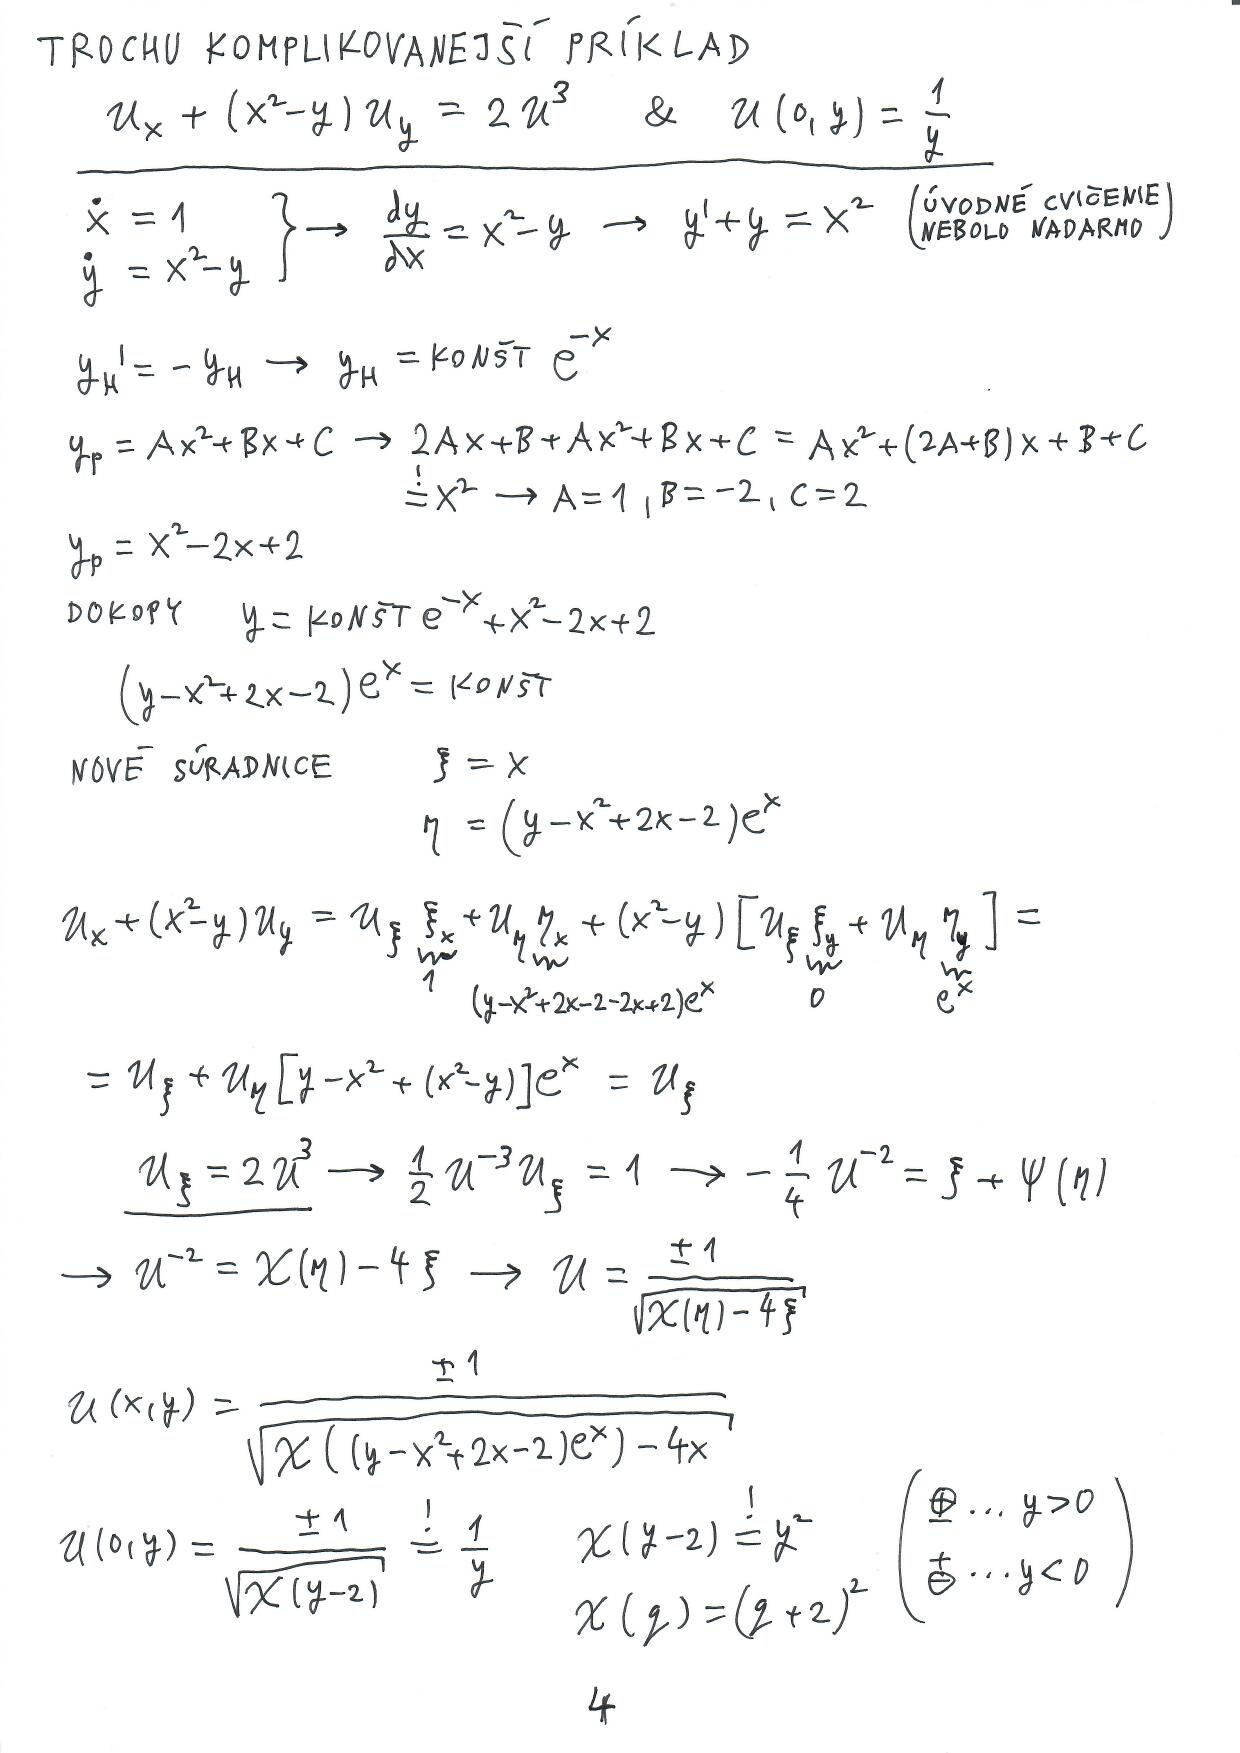 TROCHU KOMPLIKOVANEJŠÍ PRÍKLAD
u_x + (x²-y) u_y = 2u³ & u(0,y) = 1/y
ẋ = 1
ẏ = x²-y } → dy/dx = x²-y → y' + y = x² (ÚVODNÉ CVIČENIE NEBOLO NADARMO)
y_H' = -y_H → y_H = KONŠT e^{-x}
y_p = Ax²+Bx+C → 2Ax+B+Ax²+Bx+C = Ax²+(2A+B)x+B+C
=! x² → A=1, B=-2, C=2
y_p = x²-2x+2
DOKOPY y = KONŠT e^{-x}+x²-2x+2
(y-x²+2x-2)e^x = KONŠT
NOVÉ SÚRADNICE ξ = x
η = (y-x²+2x-2)e^x
u_x+(x²-y)u_y = u_ξ ξ_x + u_η η_x + (x²-y)[u_ξ ξ_y + u_η η_y] =
1 (y-x²+2x-2-2x+2)e^x 0 e^x
= u_ξ + u_η[y-x²+(x²-y)]e^x = u_ξ
u_ξ = 2u³ → 1/2 u^{-3} u_ξ = 1 → -1/4 u^{-2} = ξ + ψ(η)
→ u^{-2} = χ(η)-4ξ → u = ±1/√(χ(η)-4ξ)
u(x,y) = ±1/√(χ((y-x²+2x-2)e^x)-4x)
u(0,y) = ±1/√(χ(y-2)) =! 1/y χ(y-2) =! y² (⊕ ... y>0
χ(q) = (q+2)² ⊖ ... y<0)
4